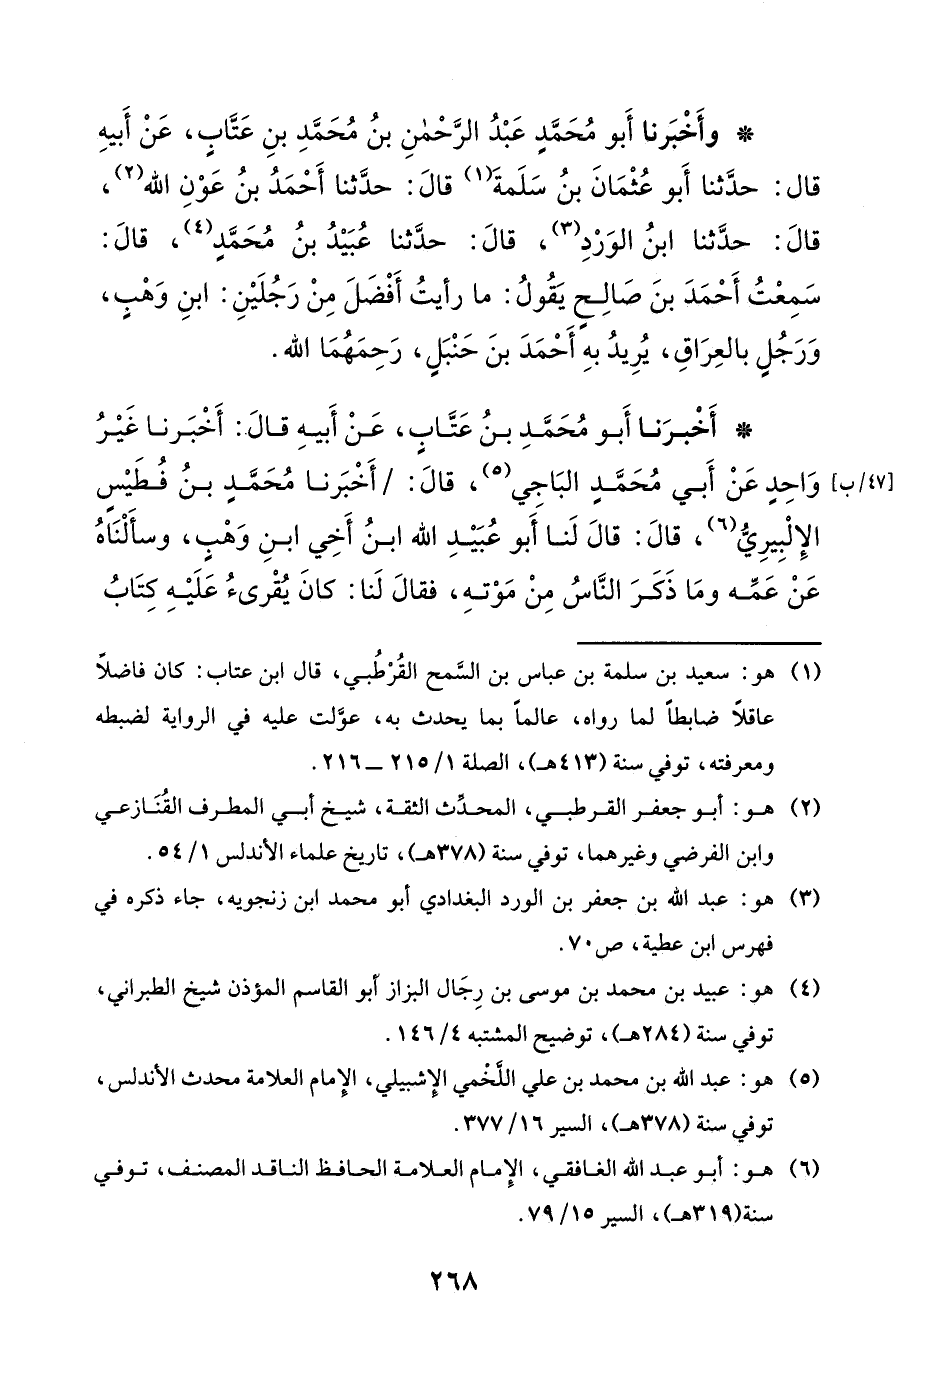 * وأَخْبَرنا أبو مُحَمَّدٍ عَبْدُ الرَّحْمٰنِ بنُ مُحَمَّدِ بنِ عَتَّابٍ، عَنْ أَبيهِ
قال: حدَّثنا أبو عُثْمَانَ بنُ سَلَمةَ(١) قالَ: حدَّثنا أَحْمَدُ بنُ عَوْنِ الله(٢)،
قالَ: حدَّثنا ابنُ الوَرْدِ(٣)، قالَ: حدَّثنا عُبَيْدُ بنُ مُحَمَّدٍ(٤)، قالَ:
سَمِعْتُ أَحْمَدَ بنَ صَالِحٍ يَقُولُ: ما رأيتُ أَفْضَلَ مِنْ رَجُلَيْنِ: ابنِ وَهْبٍ،
وَرَجُلٍ بالعِرَاقِ، يُرِيدُ بهِ أَحْمَدَ بنَ حَنْبَلٍ، رَحِمَهُمَا الله.
* أَخْبرَنا أبو مُحَمَّدِ بنُ عَتَّابٍ، عَنْ أبيهِ قالَ: أَخْبَرنا غَيْرُ
[٤٧/ب] وَاحِدٍ عَنْ أبي مُحَمَّدٍ البَاجِي(٥)، قالَ: /أَخْبَرنا مُحَمَّدِ بنُ فُطَيْسٍ
الإلْبِيرِيُّ(٦)، قالَ: قالَ لَنا أبو عُبَيْدِ الله ابنُ أَخِي ابنِ وَهْبٍ، وسألْنَاهُ
عَنْ عَمِّه ومَا ذَكَرَ النَّاسُ مِنْ مَوْتهِ، فقالَ لَنا: كانَ يُقْرىءُ عَلَيْهِ كِتَابُ
(١) هو: سعيد بن سلمة بن عباس بن السَّمح القُرْطُبي، قال ابن عتاب: كان فاضلاً
عاقلاً ضابطاً لما رواه، عالماً بما يحدث به، عوَّلت عليه في الرواية لضبطه
ومعرفته، توفي سنة (٤١٣هـ)، الصلة ٢١٥/١ ــ ٢١٦.
(٢) هو: أبو جعفر القرطبي، المحدِّث الثقة، شيخ أبي المطرف القُنَازعي
وابن الفرضي وغيرهما، توفي سنة (٣٧٨هـ)، تاريخ علماء الأندلس ٥٤/١.
(٣) هو: عبد الله بن جعفر بن الورد البغدادي أبو محمد ابن زنجويه، جاء ذكره في
فهرس ابن عطية، ص٧٠.
(٤) هو: عبيد بن محمد بن موسى بن رِجَال البزاز أبو القاسم المؤذن شيخ الطبراني،
توفي سنة (٢٨٤هـ)، توضيح المشتبه ١٤٦/٤.
(٥) هو: عبد الله بن محمد بن علي اللَّخْمي الإشبيلي، الإمام العلامة محدث الأندلس،
توفي سنة (٣٧٨هـ)، السير ٣٧٧/١٦.
(٦) هو: أبو عبد الله الغافقي، الإمام العلامة الحافظ الناقد المصنف، توفي
سنة(٣١٩هـ)، السير ٧٩/١٥.
٢٦٨